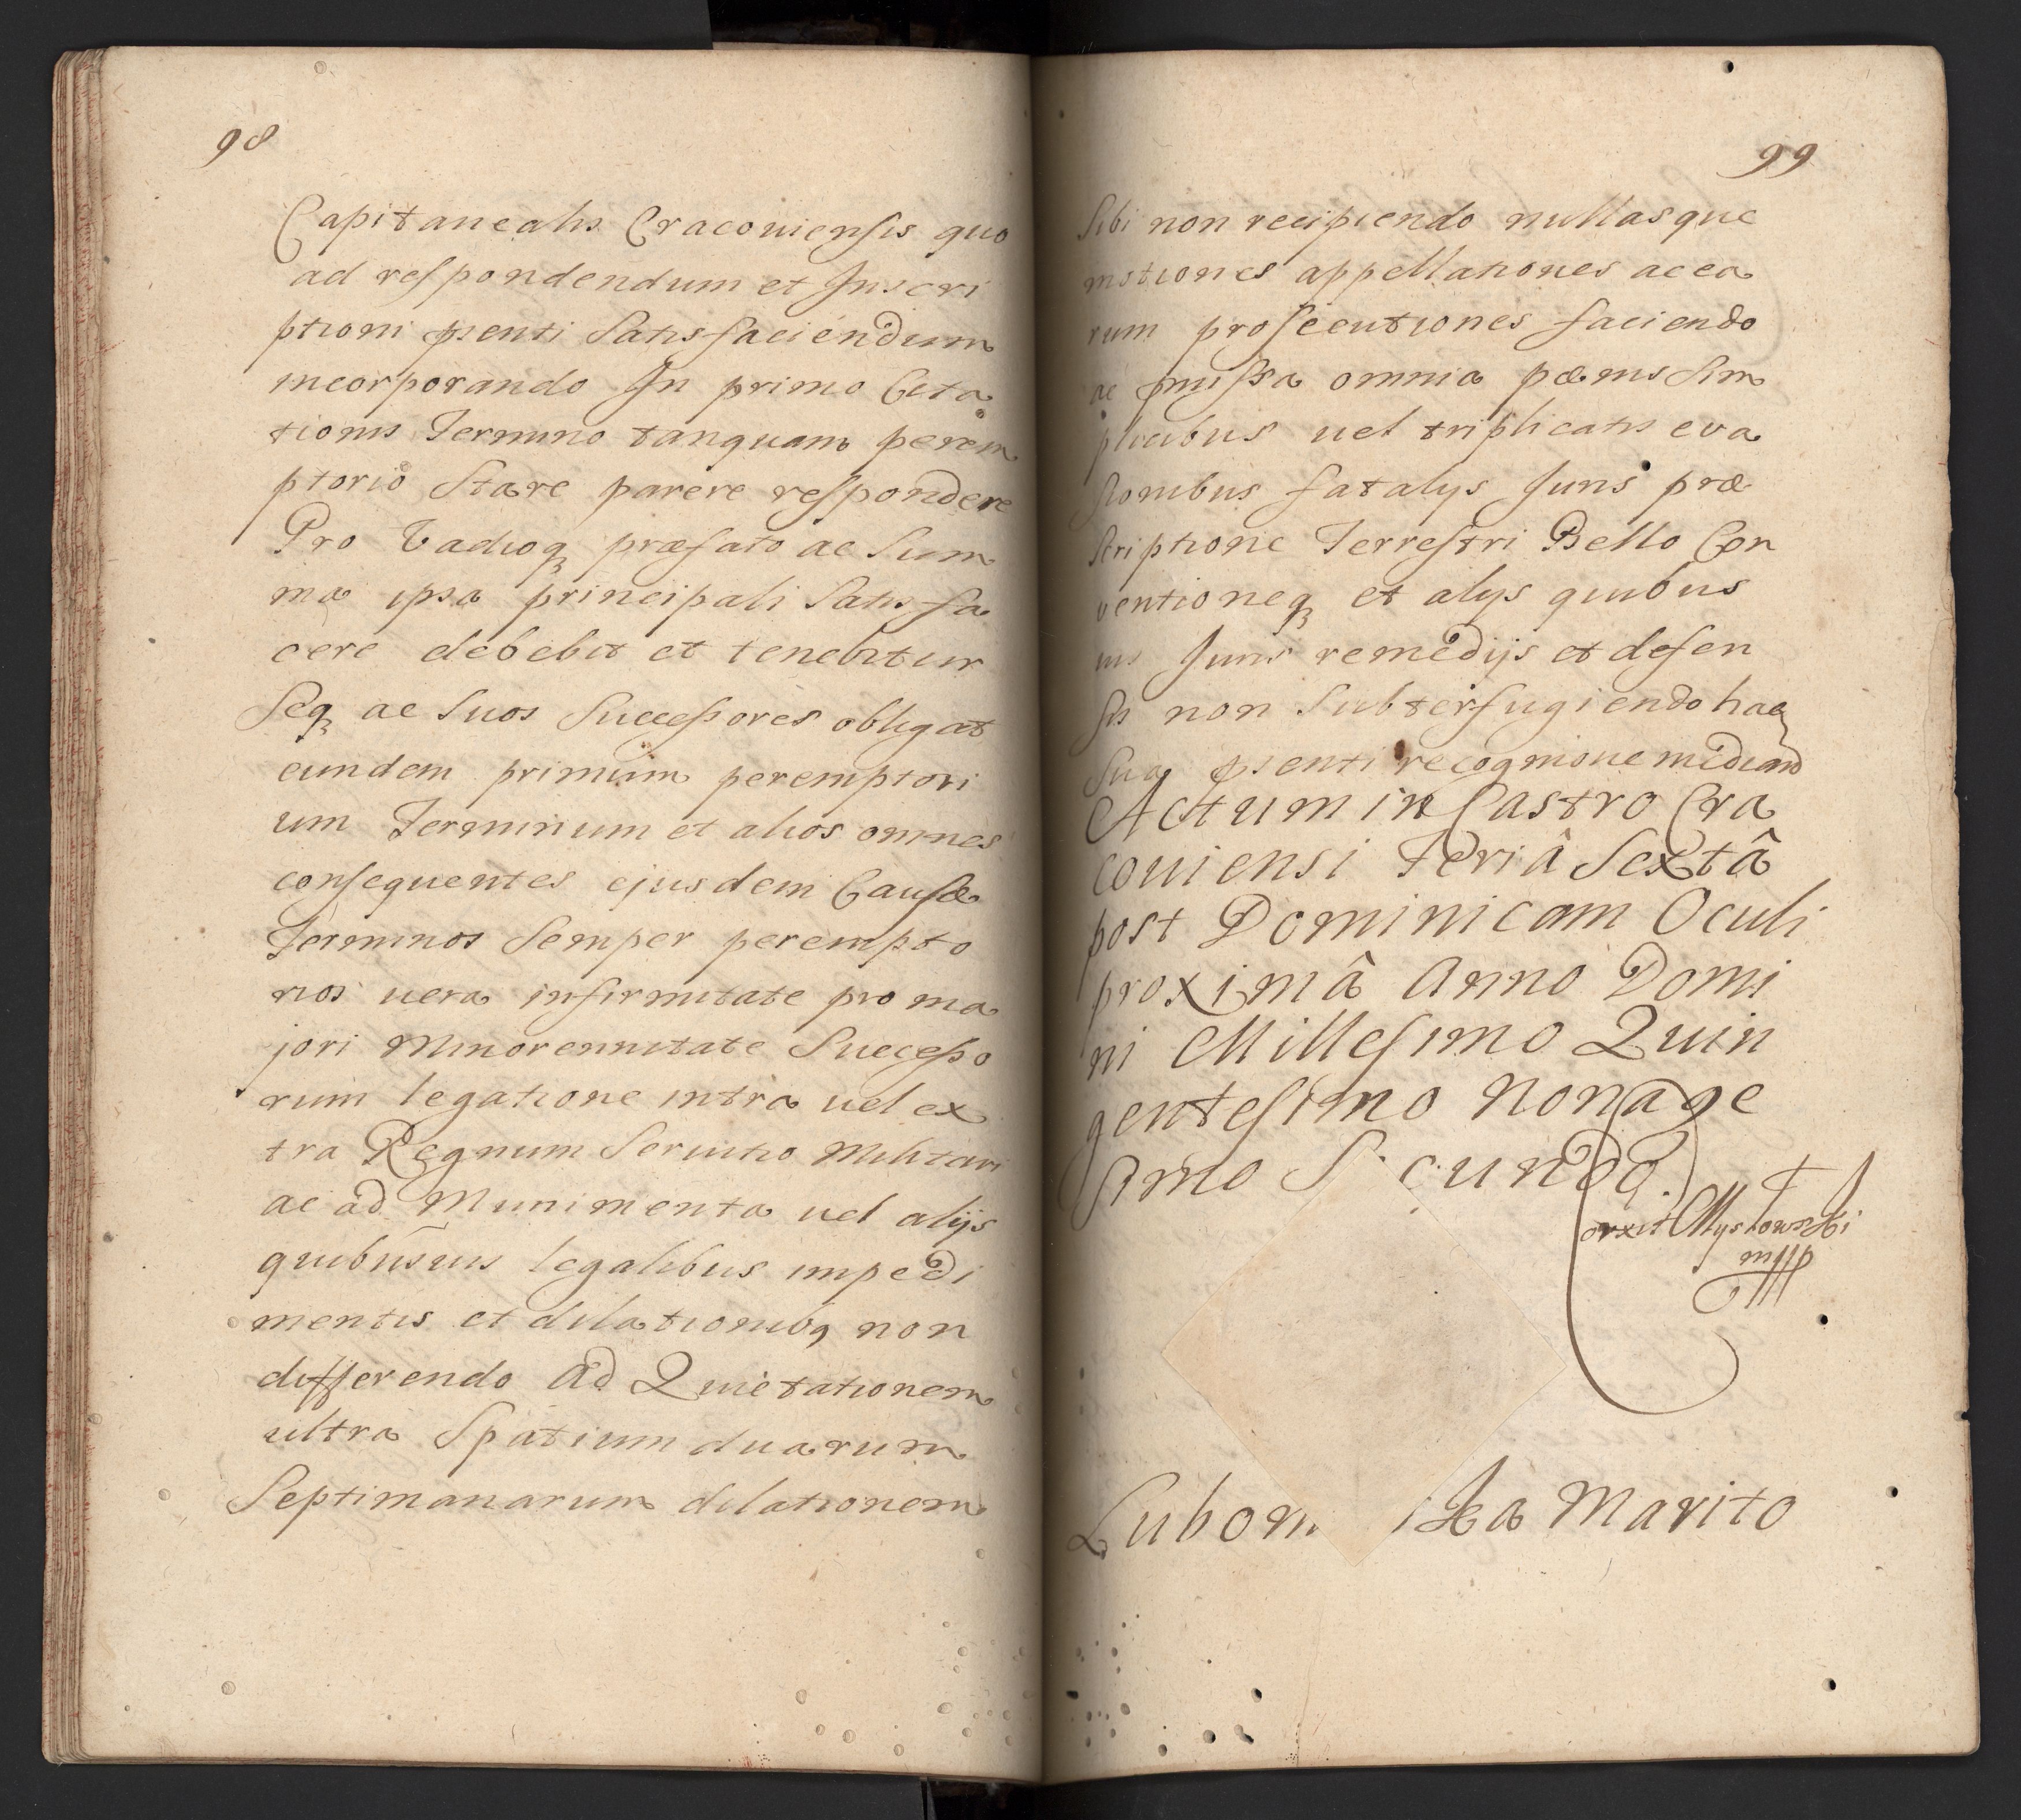 98
Capitanealis Cracouiensis quo
ad respondendum et Inscri
ptioni pñenti Satisfaciendum
incorporando In primo Cita
tionis Termino tanquam perem
ptorio Stare parere respondere
Pro Vadioq præfato ac Sum
ma ipsa principali Satisfa
cere debebit et tenebitur
Seq ac Suos Successores obligat
eundem primum peremptori
um Terminum et alios omnes
consequentes ejusdem Causæ
Terminos Semper perempto
rios uera infirmitate pro ma
jori Minorennitate Successo
rum legatione intra uel ex
tra Regnum Seruitio Militari
ac ad Munimenta uel alijs
quibusuis legalibus impedi
mentis et dilationibq non
differendo Ad Quietationem
ultra Spatium duarum
Septimanarum dilationem
99
Sibi non recipiendo nullasque
motiones appellationes ac ea
rum prosecutiones faciendo
ac pmissa omnia pœnis Sim
plicibus uel triplicatis eva
sionibus fatalijs Juris præ
scriptione Terrestri Bello Con
ventioneq et alijs quibus
uis Juris remedijs et defen
sis non Subterfugiendo hac
Sua pñenti recognitione mediand
Actum in Castro Cra
couiensi Feriâ Sextâ
post Dominicam Oculi
proximâ Anno Domi
ni Millesimo Quin
gentesimo Nonage
simo S cundo.
Myslowski
mpp
Lubom ska Marito